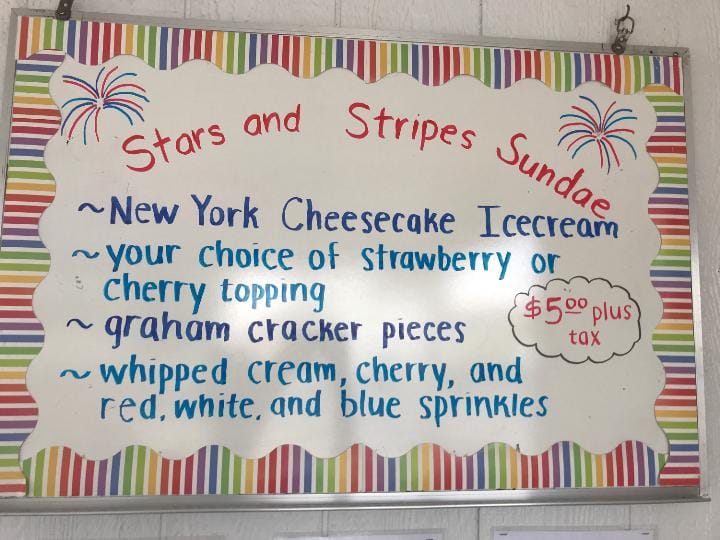 Stars and Stripes Sundae
~New York Cheesecake Icecream
~your choice of strawberry or
cherry topping
~ graham cracker pieces
~ whipped cream, cherry, and
red, white, and blue sprinkles
$5.00 plus
tax